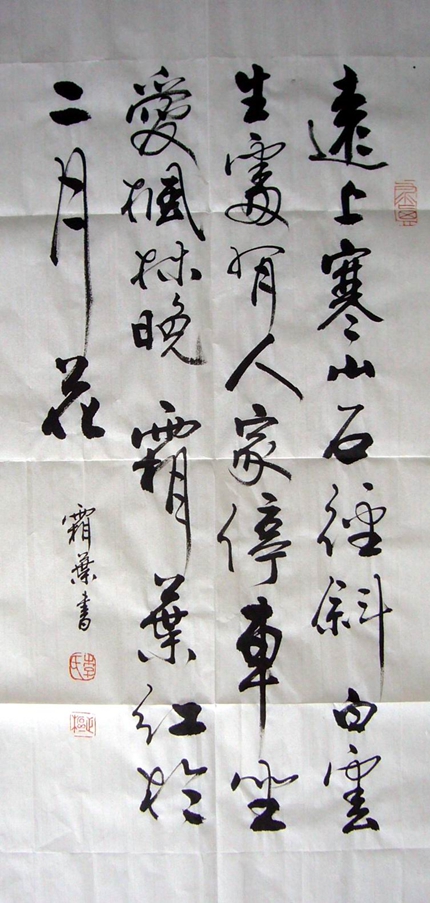 遠上寒山石徑斜白雲
生處有人家停車坐
愛楓林晚霜葉紅於
二月花
霜葉書